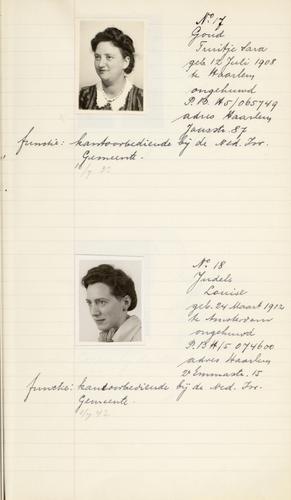 No 17
Goud
Truitje Sara
geb. 12 Juli 1908
te Haarlem
ongehuwd
P.B. H5/065749
adres Haarlem
Jansstr. 87
functie: kantoorbediende bij de Ned. Isr.
Gemeente.
No 18
Judels
Louise
geb. 24 Maart 1912
te Amsterdam
ongehuwd
P.B H/5 074600
adres Haarlem
v Emmastr. 15
functie: kantoorbediende bij de Ned. Isr.
Gemeente.